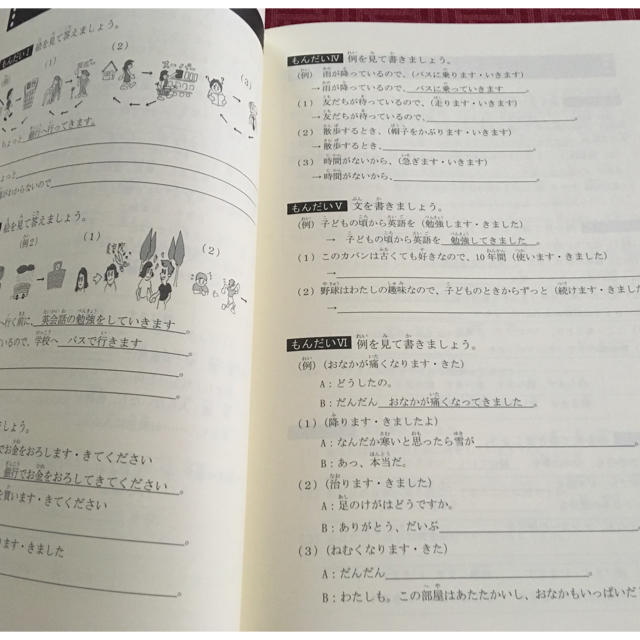 もんだいⅠ 絵を見て答えましょう。
(1)
(2)
(3)
銀行へ行ってきます。
がわからないので
絵を見て答えましょう。
(例2)
(1)
(2)
行く前に、英会話の勉強をしていきます
いるので、学校へ バスで行きます
ましょう。
でお金をおろします・きてください
銀行でお金をおろしてきてください。
を買います・きてください
ます・きました
もんだいⅣ 例を見て書きましょう。
(例) 雨が降っているので、(バスに乗ります・いきます)
→雨が降っているので、 バスに乗っていきます 。
(1) 友だちが待っているので、(走ります・いきます)
→友だちが待っているので、 。
(2) 散歩するとき、(帽子をかぶります・いきます)
→散歩するとき、 。
(3) 時間がないから、(急ぎます・いきます)
→時間がないから、 。
もんだいⅤ 文を書きましょう。
(例) 子どもの頃から英語を (勉強します・きました)
→ 子どもの頃から英語を 勉強してきました 。
(1) このカバンは古くても好きなので、10年間 (使います・きました)
→
(2) 野球はわたしの趣味なので、子どものときからずっと (続けます・きました
→
もんだいⅥ 例を見て書きましょう。
(例) (おなかが痛くなります・きた)
A:どうしたの。
B:だんだん おなかが痛くなってきました 。
(1) (降ります・きましたよ)
A:なんだか寒いと思ったら雪が 。
B:あっ、本当だ。
(2) (治ります・きました)
A:足のけがはどうですか。
B:ありがとう、だいぶ 。
(3) (ねむくなります・きた)
A:だんだん 。
B:わたしも。この部屋はあたたかいし、おなかもいっぱいだ